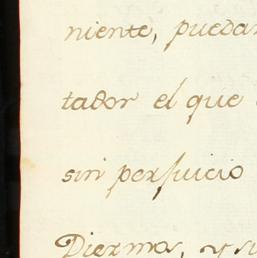 niente, puedan
tador el que
sin perjuicio
Diezmos, y su